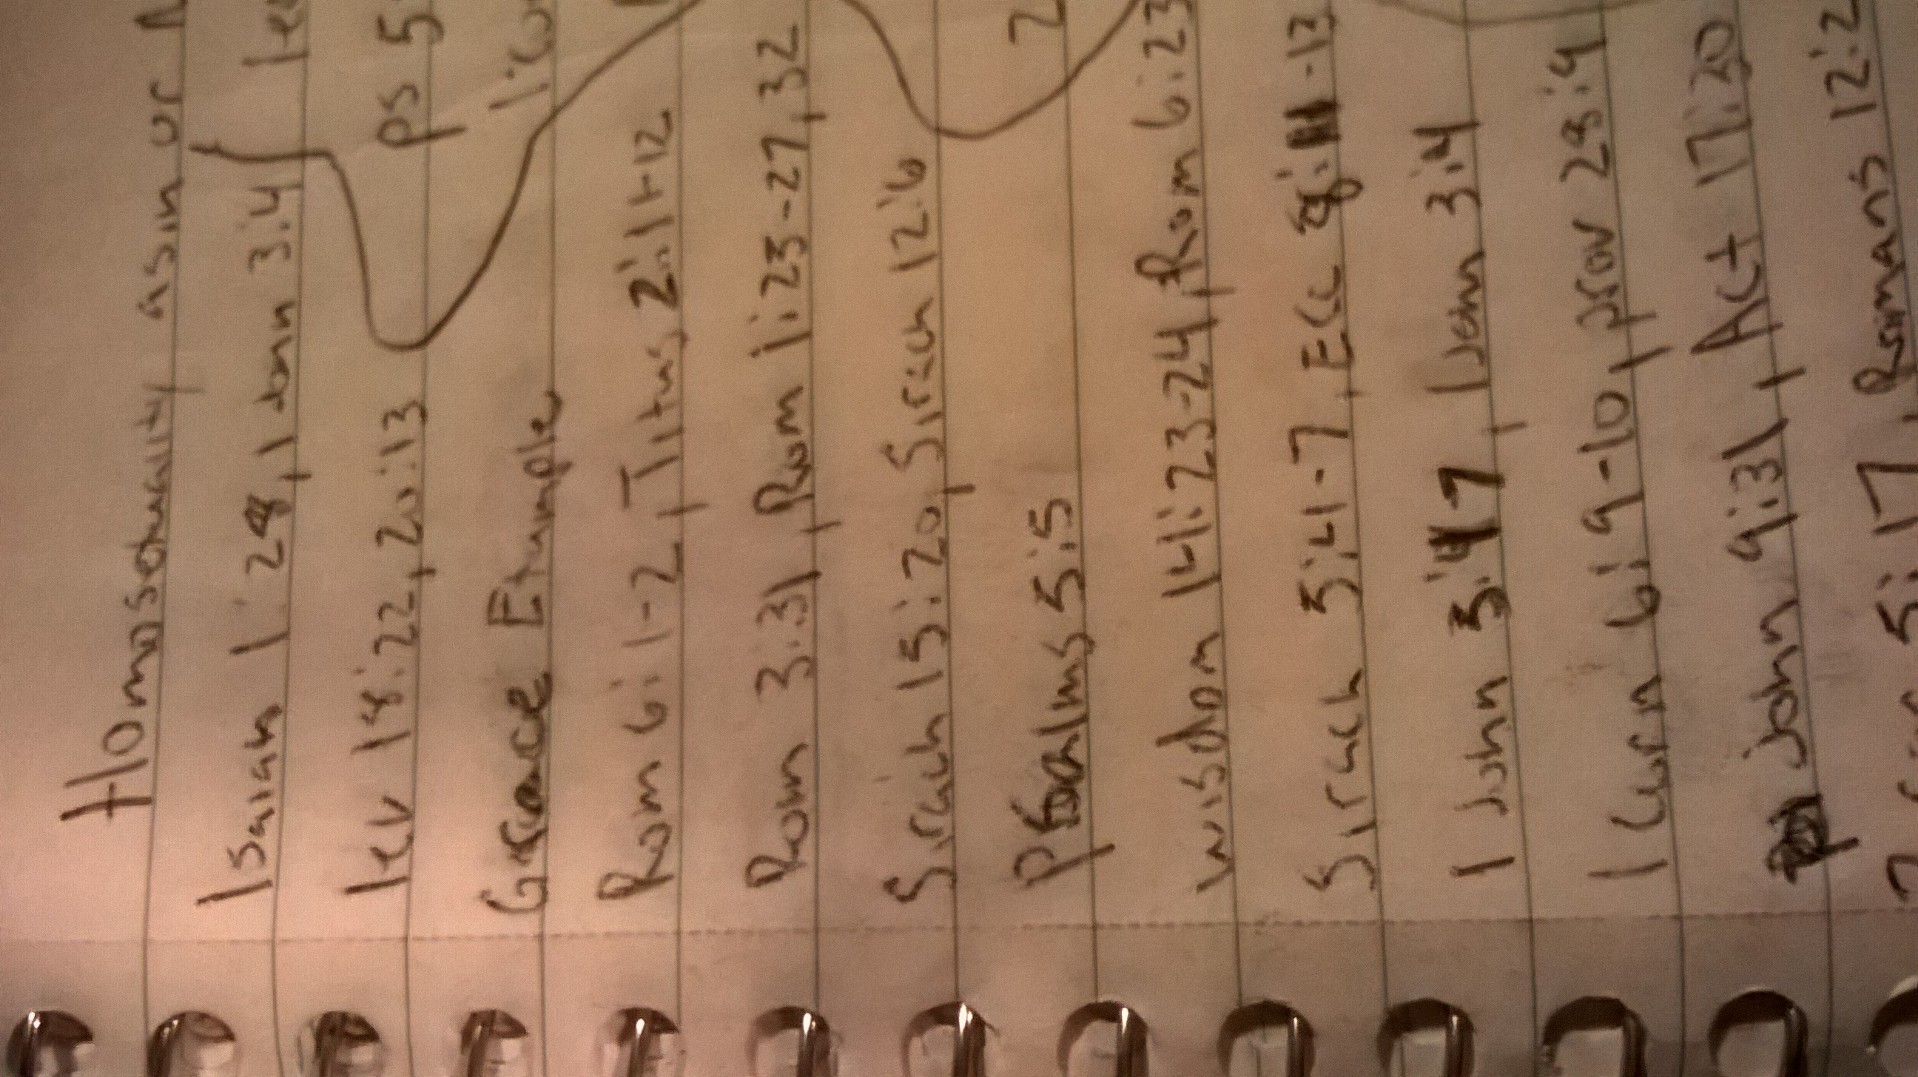 Homosexuality a sin or
Isaiah 1:28, 1 John 3:4 lev
lev 18:22, 20:13 Ps 5
Grace Example
Rom 6:1-2, Titus 2:11+12
Rom 3:31, Rom 1:23-27, 32
Sirach 15:20, Sirach 12:6
Psalms 5:5 2
Wisdom 14:23-24, Rom 6:23
Sirach 5:4-7, Ecc 8:11-13
1 John 3:47, 1 John 3:4
1 Corn 6:9-10, prov 28:9
john 9:31, Act 17:30
5:17, Romans 12:2